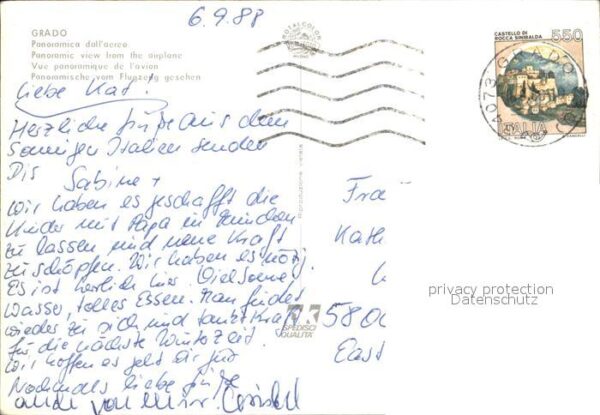 6.9.88
GRADO
Panoramica dall'aereo
Panoramic view from the airplane
Vue panoramique de l'avion
Panoramische vom Flugzeug gesehen
Liebe Kat!
Herzliche Grüße aus dem
Sonnigen Italien senden
Dir
Sabine +
Wir haben es geschafft die
Kinder mit Papa in
zu lassen und neue Kraft
zu schöpfen. Wir haben es nötig.
Es ist herrlich hier. Viel Sonne,
Wasser, tolles Essen. Man findet
wieder zu sich und tankt Kraft
für die nächste
Wir hoffen es geht Dir gut
Nochmals liebe Grüße
auch von
ROTALCOLOR
Riproduzione vietata
SPEDISCI
QUALITA'
CASTELLO DI
ROCCA SINIBALDA
550
ITALIA
34073 GRADO
Fra
Kath
580
East
privacy protection
Datenschutz